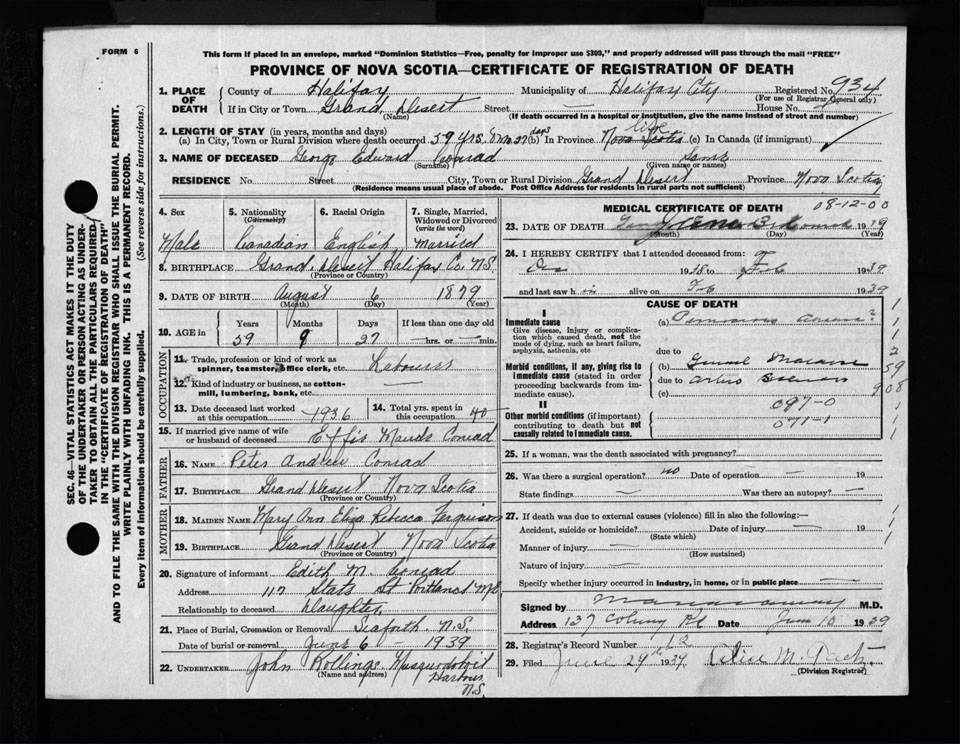 FORM 6
This form if placed in an envelope, marked "Dominion Statistics—Free, penalty for improper use $300," and properly addressed will pass through the mail "FREE"
PROVINCE OF NOVA SCOTIA—CERTIFICATE OF REGISTRATION OF DEATH
1. PLACE OF DEATH
County of Halifax Municipality of Halifax City Registered No. 934
(For use of Registrar General only)
If in City or Town Grand Desert Street — House No.
(Name) (If death occurred in a hospital or institution, give the name instead of street and number)
2. LENGTH OF STAY (in years, months and days)
(a) In City, Town or Rural Division where death occurred 59 yrs. 9 mo. 27 days (b) In Province life Nova Scotia (c) In Canada (if immigrant)
3. NAME OF DECEASED George Edward Conrad Same
(Surname) (Given name or names)
RESIDENCE No. Street City, Town or Rural Division Grand Desert Province Nova Scotia
(Residence means usual place of abode. Post Office Address for residents in rural parts not sufficient)
4. Sex 5. Nationality (Citizenship) 6. Racial Origin 7. Single, Married, Widowed or Divorced (write the word)
Male Canadian English married
8. BIRTHPLACE Grand Desert Halifax Co. N.S.
(Province or Country)
9. DATE OF BIRTH August 6 1879
(Month) (Day) (Year)
10. AGE in Years Months Days If less than one day
59 9 27 hrs. or min.
OCCUPATION
11. Trade, profession or kind of work as spinner, teamster, office clerk, etc. Labourer
12. Kind of industry or business, as cotton-mill, lumbering, bank, etc. —
13. Date deceased last worked at this occupation 1936 14. Total yrs. spent in this occupation 40
15. If married give name of wife or husband of deceased Effie Maude Conrad
FATHER
16. NAME Peter Andrew Conrad
17. BIRTHPLACE Grand Desert Nova Scotia
(Province or Country)
MOTHER
18. MAIDEN NAME Mary Ann Eliza Rebecca Ferguson
19. BIRTHPLACE Grand Desert Nova Scotia
(Province or Country)
20. Signature of informant Edith M. Conrad
Address 117 State St Portland Me
Relationship to deceased Daughter
21. Place of Burial, Cremation or Removal Seaforth N.S.
Date of burial or removal June 6 1939
22. UNDERTAKER John Rollings Musquodoboit Harbour N.S.
(Name and address)
MEDICAL CERTIFICATE OF DEATH 08-12-00
23. DATE OF DEATH June 3rd
(Month) (Day) (Year)
24. I HEREBY CERTIFY that I attended deceased from:
Dec 1938 to Feb 1939
and last saw h im alive on Feb 1939
CAUSE OF DEATH
I
Immediate cause
Give disease, injury or complication which caused death, not the mode of dying, such as heart failure, asphyxia, asthenia, etc
(a) Pernicious
due to
Morbid conditions, if any, giving rise to immediate cause (stated in order proceeding backwards from immediate cause).
(b) General
due to
(c)
II
Other morbid conditions (if important) contributing to death but not causally related to immediate cause.
097-0
071-1
1
1
1
2
59
908
1
1
1
25. If a woman, was the death associated with pregnancy? —
26. Was there a surgical operation? no Date of operation — 19
State findings — Was there an autopsy? —
27. If death was due to external causes (violence) fill in also the following:—
Accident, suicide or homicide? — Date of injury — 19
(State which)
Manner of injury —
(How sustained)
Nature of injury —
Specify whether injury occurred in industry, in home, or in public place —
Signed by M.D.
Address 137 Date June 10 1939
28. Registrar's Record Number 12
29. Filed June 24th 1939
(Division Registrar)
SEC. 46—VITAL STATISTICS ACT MAKES IT THE DUTY OF THE UNDERTAKER OR PERSON ACTING AS UNDERTAKER TO OBTAIN ALL THE PARTICULARS REQUIRED IN THE "CERTIFICATE OF REGISTRATION OF DEATH" AND TO FILE THE SAME WITH THE DIVISION REGISTRAR WHO SHALL ISSUE THE BURIAL PERMIT.
WRITE PLAINLY WITH UNFADING INK. THIS IS A PERMANENT RECORD.
Every item of information should be carefully supplied. (See reverse side for instructions.)